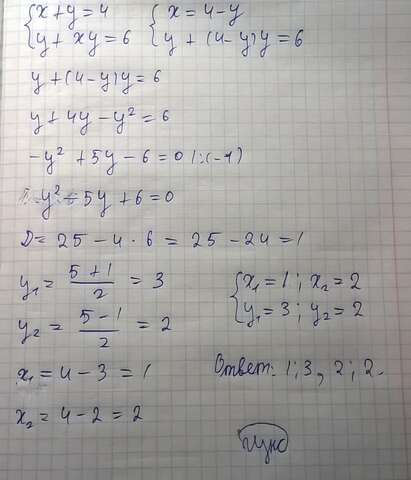 {x+y=4 {x=4-y
{y+xy=6 {y+(4-y)y=6
y+(4-y)y=6
y+4y-y²=6
-y²+5y-6=0 |:(-1)
y²-5y+6=0
D=25-4·6=25-24=1
y₁=(5+1)/2=3 {x₁=1; x₂=2
y₂=(5-1)/2=2 {y₁=3; y₂=2
x₁=4-3=1 Ответ: 1;3, 2;2.
x₂=4-2=2